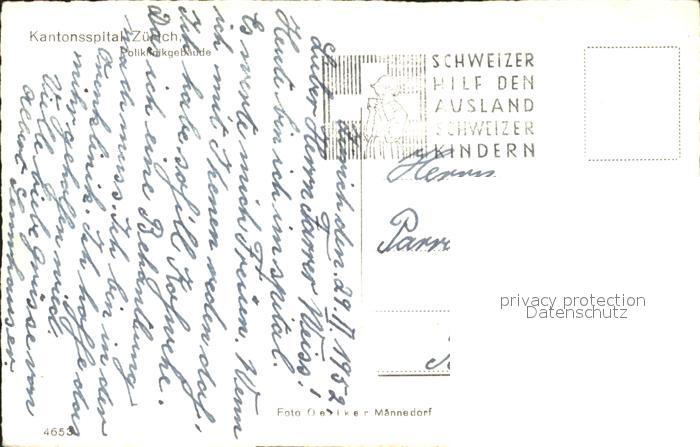 Kantonsspital Zürich,
Poliklinikgebäude
SCHWEIZER
HILF DEN
AUSLAND
SCHWEIZER
KINDERN
Zürich den. 29. II 1952.
Lieber Herr Pfarrer Weiss!
Heute bin ich im spital.
Es werte mich Freuen. Wenn
ich mit Ihenen reden darf,
Ich habe so fill Kofwehe.
Das ich eine Behantlung
nach muss. Ich bin in der
Ohrenklinik. Ich hoffe das
mihr geholfen wird.
Viele liebe Grüsse von
Herrn
Parre
privacy protection
Datenschutz
4653
Foto Oetiker Männedorf